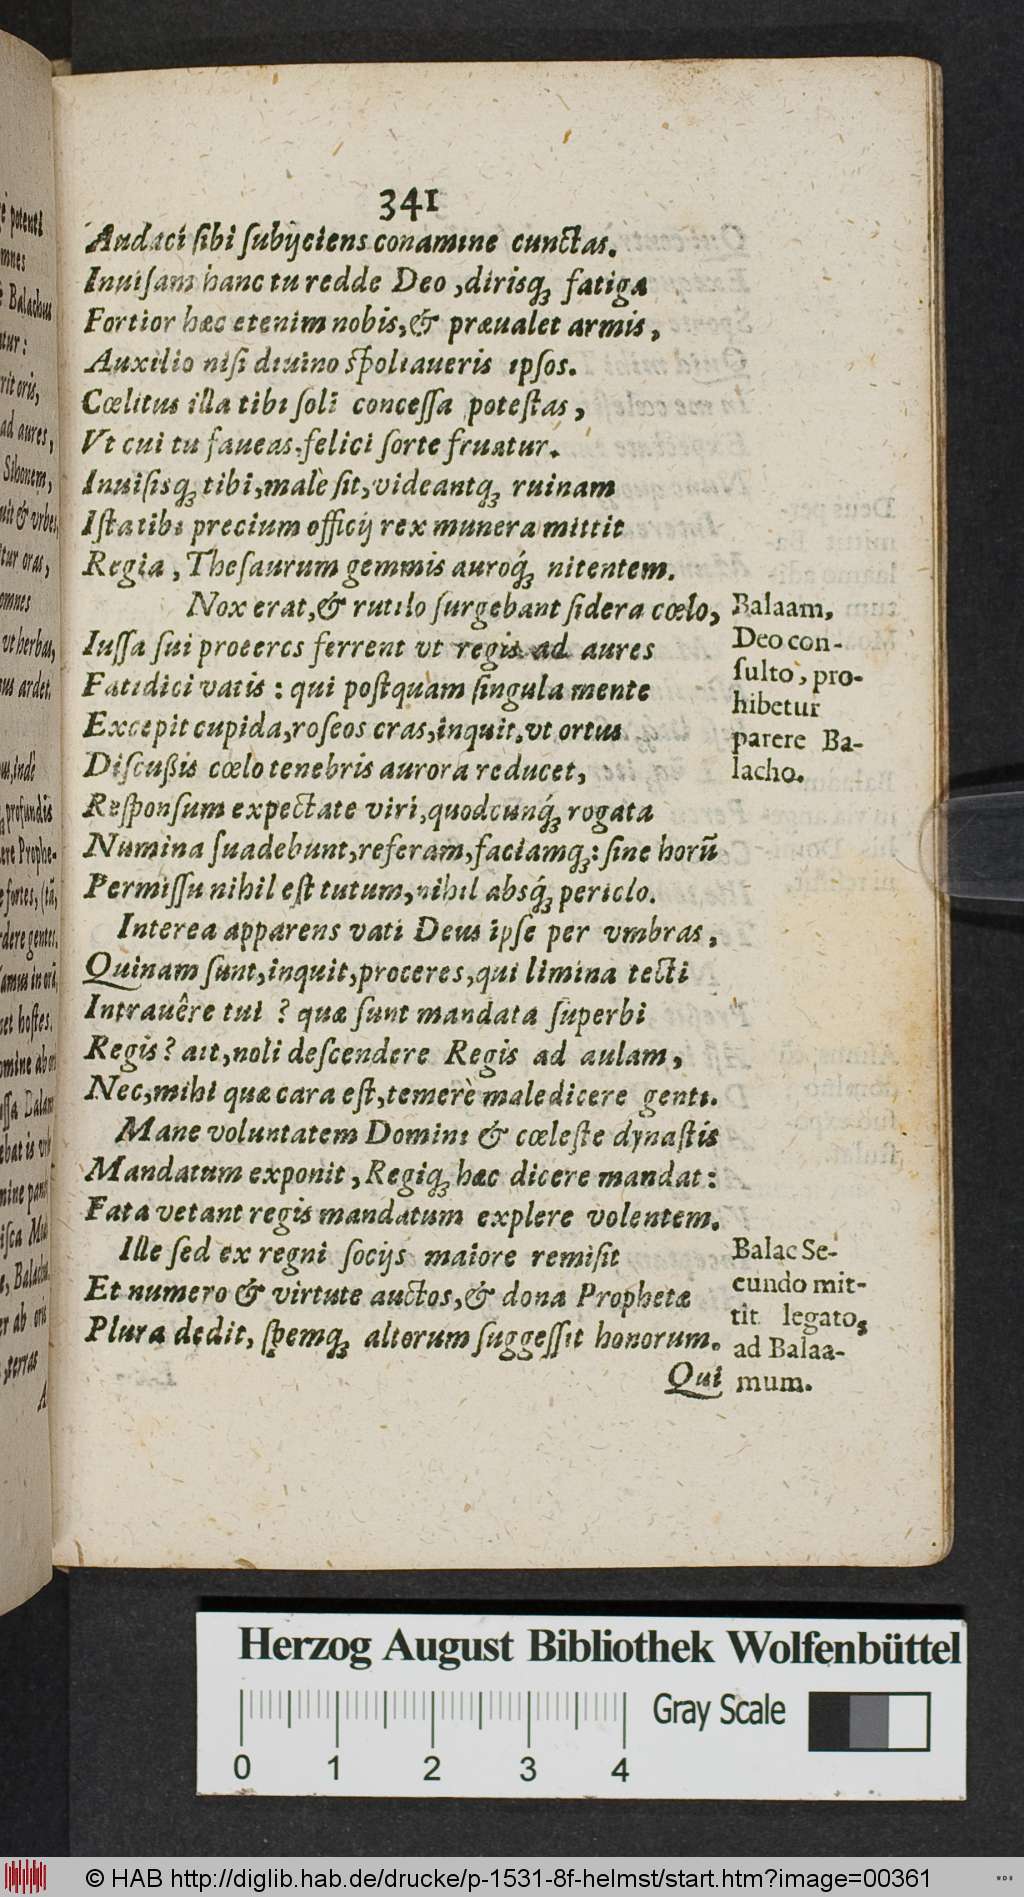 341
Audaci ſibi ſubijciens conamine cunctas.
Inuiſam hanc tu redde Deo, dirisq́ꝫ fatiga
Fortior hæc etenim nobis, & præualet armis,
Auxilio niſi diuino ſpoliaueris ipſos.
Cœlitus illa tibi ſoli conceſſa poteſtas,
Vt cui tu faueas, felici ſorte fruatur.
Inuiſisqꝫ tibi, malè ſit, videantqꝫ ruinam
Iſta tibi precium officij rex munera mittit
Regia, Theſaurum gemmis auroq́ꝫ nitentem.
Nox erat, & rutilo ſurgebant ſidera cœlo,
Iuſſa ſui proceres ferrent vt regis ad aures
Fatidici vatis: qui poſtquam ſingula mente
Excepit cupida, roſeos cras, inquit, vt ortus
Diſcußis cœlo tenebris aurora reducet,
Reſponſum expectate viri, quodcunq́ꝫ rogata
Numina ſuadebunt, referam, faciamqꝫ: ſine horũ
Permiſſu nihil eſt tutum, nihil absq́ꝫ periclo.
Interea apparens vati Deus ipſe per vmbras,
Quinam ſunt, inquit, proceres, qui limina tecti
Intrauêre tui? quæ ſunt mandata ſuperbi
Regis? ait, noli deſcendere Regis ad aulam,
Nec, mihi quæ cara eſt, temerè maledicere genti.
Mane voluntatem Domini & cœleſte dynaſtis
Mandatum exponit, Regiqꝫ hæc dicere mandat:
Fata vetant regis mandatum explere volentem.
Ille ſed ex regni ſocijs maiore remiſit
Et numero & virtute auctos, & dona Prophetæ
Plura dedit, ſpemqꝫ altorum ſuggeſſit honorum.
Qui
Balaam,
Deo con-
ſulto, pro-
hibetur
parere Ba-
lacho.
Balac Se-
cundo mit-
tit legato,
ad Balaa-
mum.
Herzog August Bibliothek Wolfenbüttel
Gray Scale
0 1 2 3 4
© HAB http://diglib.hab.de/drucke/p-1531-8f-helmst/start.htm?image=00361